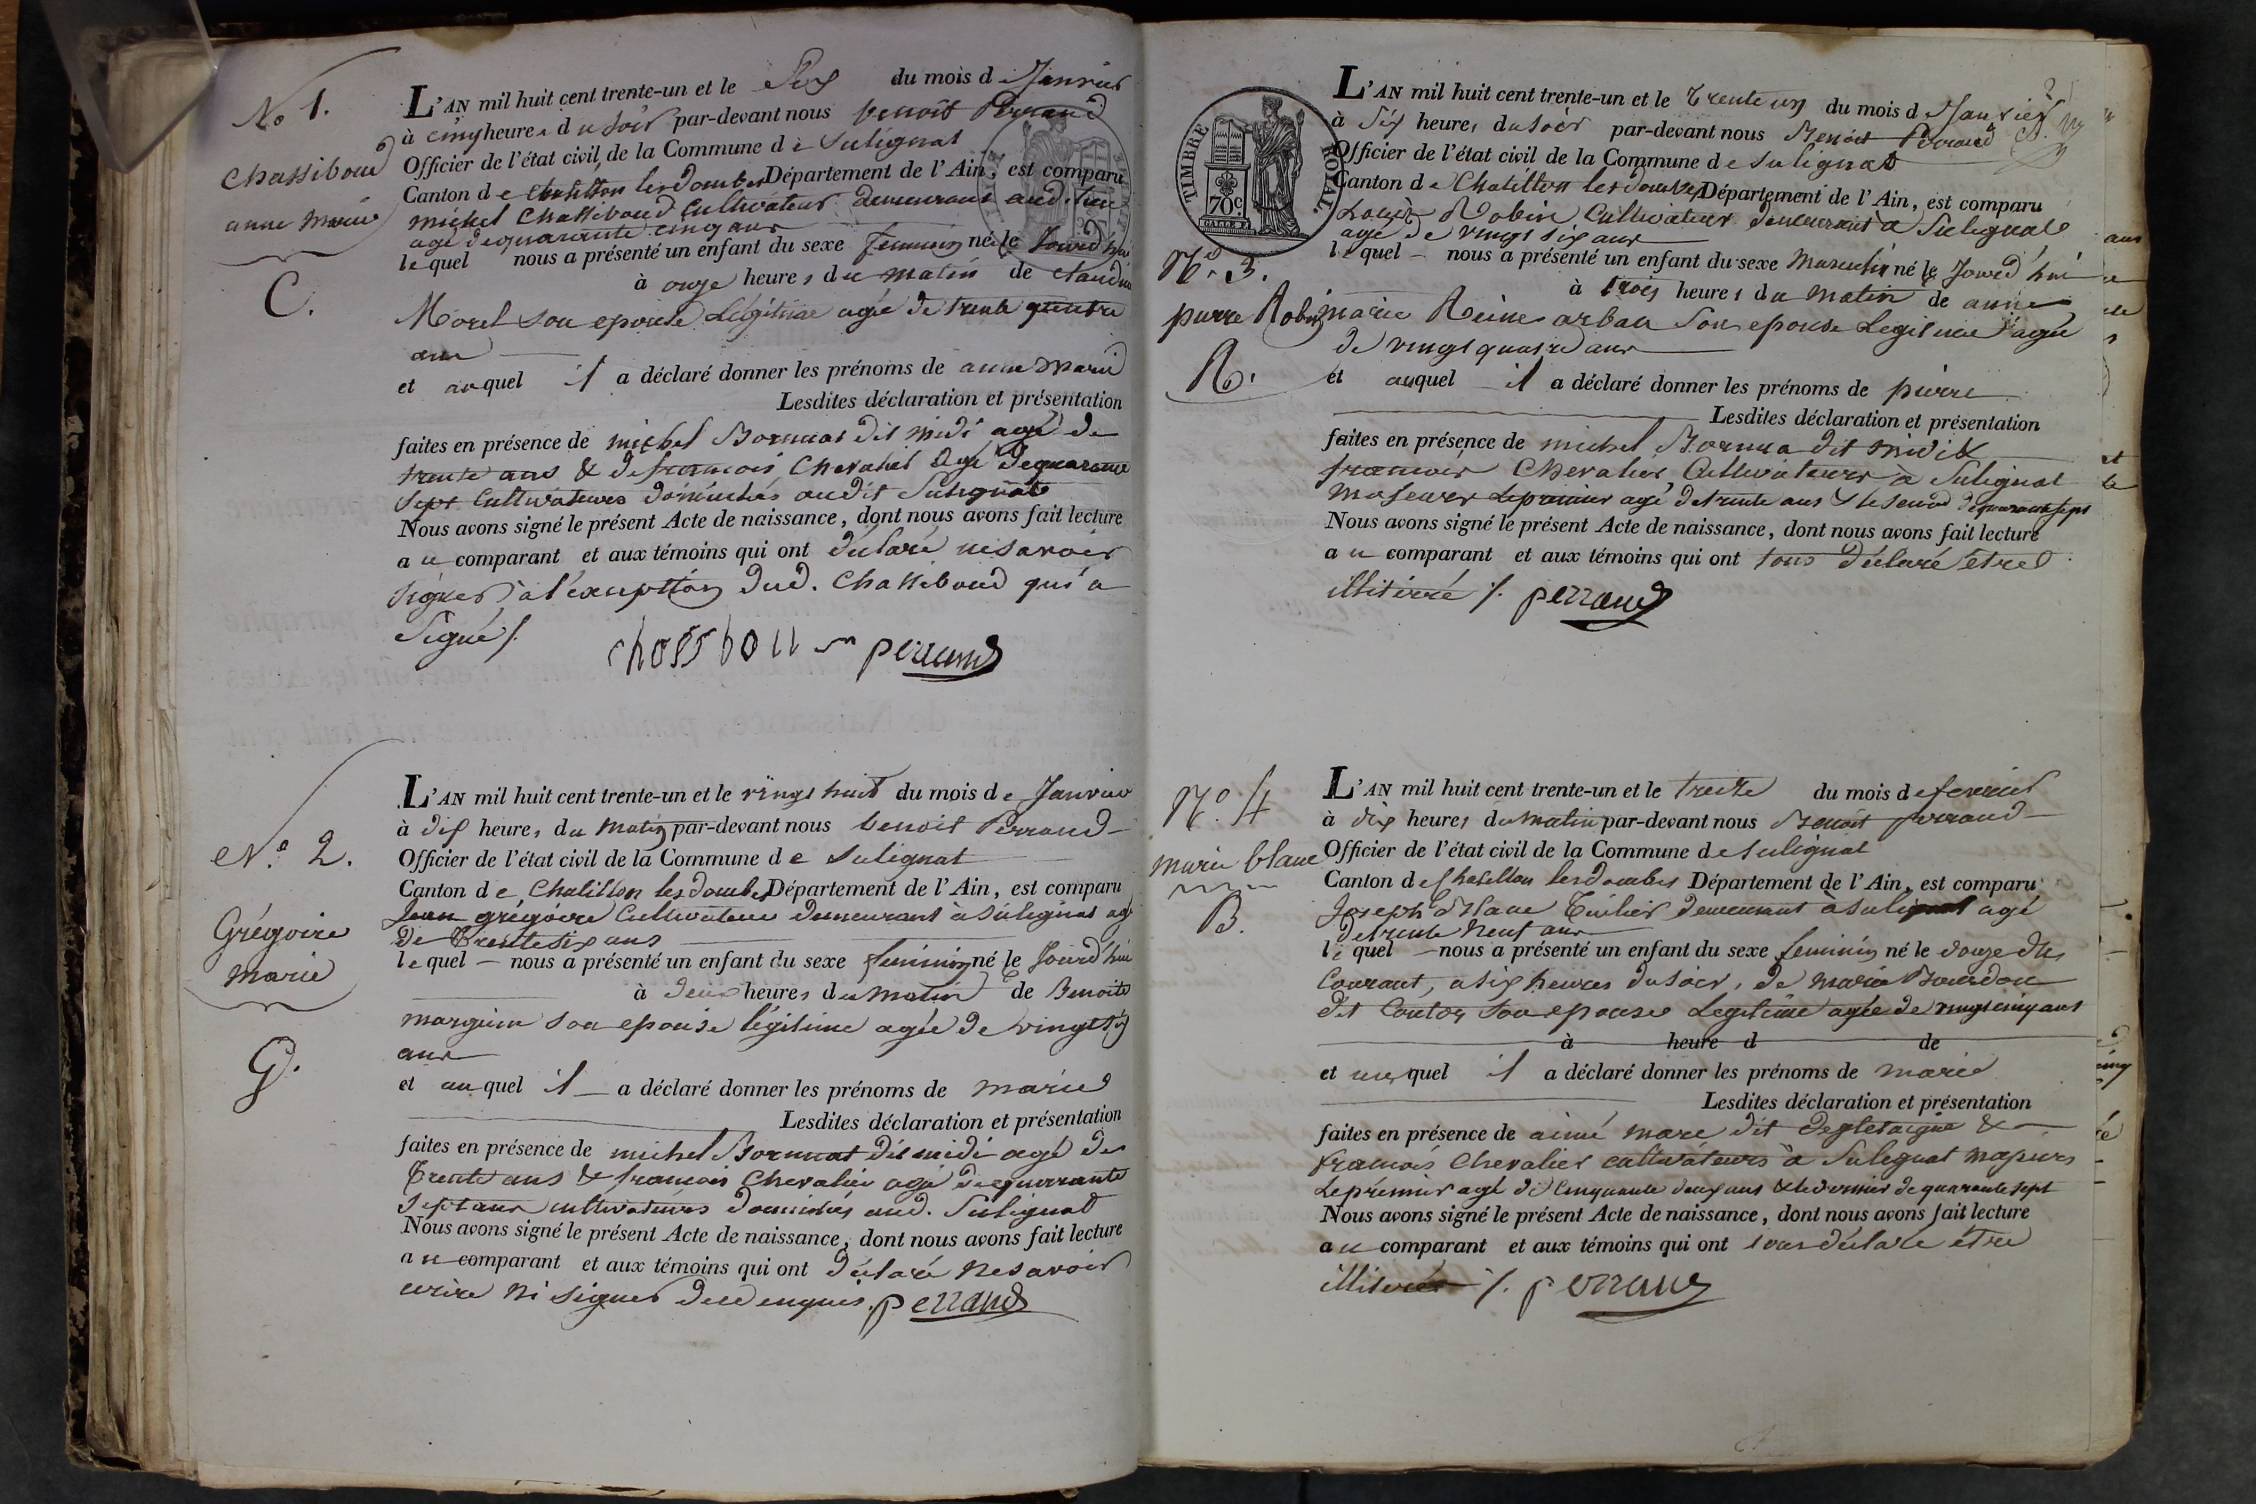 No 1.
Chassiboud
anne Marie
C.
L'AN mil huit cent trente-un et le Six du mois de Janvier
à cinq heures du soir par-devant nous benoit Perraud
Officier de l'état civil de la Commune de Sulignat
Canton de Chatillon les dombes Département de l'Ain, est comparu
michel Chassiboud Cultivateur demeurant aud. lieu
agé de quarante cinq ans
lequel nous a présenté un enfant du sexe feminin né le Jourd'hui
à onze heures du matin de Claudine
Morel son epouse Légitime agée de trente quatre
ans
et auquel il a déclaré donner les prénoms de anne Marie
Lesdites déclaration et présentation
faites en présence de michel Bornuat dit midi agé de
trente ans & de francois Chevalier agé de quarante
sept Cultivateurs domiciliés audit Sulignat
Nous avons signé le présent Acte de naissance, dont nous avons fait lecture
au comparant et aux témoins qui ont déclaré ne savoir
signer à l'exception dud. Chassiboud qui a
Signé /.
perraud
No. 2.
Grégoire
marie
G.
L'AN mil huit cent trente-un et le vingt huit du mois de Janvier
à dix heures du matin par-devant nous benoit Perraud
Officier de l'état civil de la Commune de Sulignat
Canton de Chatillon les dombes Département de l'Ain, est comparu
Jean grégoire Cultivateur demeurant à Sulignat agé
de trente six ans
lequel nous a présenté un enfant du sexe feminin né le Jourd'hui
à deux heures du matin de Benoite
manguin son epouse légitime agée de vingt six
ans
et auquel il a déclaré donner les prénoms de marie
Lesdites déclaration et présentation
faites en présence de michel Bornuat dit midi agé de
trente ans & francois Chevalier agé de quarante
sept ans cultivateurs domiciliés aud. Sulignat
Nous avons signé le présent Acte de naissance, dont nous avons fait lecture
au comparant et aux témoins qui ont déclaré ne savoir
ecrire ni signer de ce enquis. perraud
TIMBRE ROYAL.
70c
No. 3.
pierre Robin
R.
L'AN mil huit cent trente-un et le trente un du mois de Janvier
à Six heures du soir par-devant nous Benoit Perraud
Officier de l'état civil de la Commune de Sulignat
Canton de Chatillon les dombes Département de l'Ain, est comparu
Louis Robin Cultivateur demeurant à Sulignat
agé de vingt six ans
lequel nous a présenté un enfant du sexe Masculin né le Jourd'hui
à trois heures du matin de anne
marie Reine arban son epouse Legitime agée
de vingt quatre ans
et auquel il a déclaré donner les prénoms de pierre
Lesdites déclaration et présentation
faites en présence de michel Bornua dit midi &
francois Chevalier Cultivateurs à Sulignat
Majeurs le premier agé de trente ans & le second de quarante sept
Nous avons signé le présent Acte de naissance, dont nous avons fait lecture
au comparant et aux témoins qui ont tous déclaré être
illitérré /. perraud
No. 4
marie blanc
B.
L'AN mil huit cent trente-un et le treize du mois de fevrier
à dix heures du matin par-devant nous Benoit perraud
Officier de l'état civil de la Commune de Sulignat
Canton de Chatillon les dombes Département de l'Ain, est comparu
Joseph Blanc Tuilier demeurant à Sulignat agé
de trente neuf ans
lequel nous a présenté un enfant du sexe feminin né le douze du
Courant, à six heures du soir, de marie Bourdon
dit Couton son epouse Legitime agée de vingt cinq ans
à heure d de
et auquel il a déclaré donner les prénoms de marie
Lesdites déclaration et présentation
faites en présence de aimé maré dit &
francois Chevalier cultivateurs à Sulignat majeurs
Le premier agé de Cinquante deux ans & le dernier de quarante sept
Nous avons signé le présent Acte de naissance, dont nous avons fait lecture
au comparant et aux témoins qui ont tous déclaré être
illiterés /. perraud